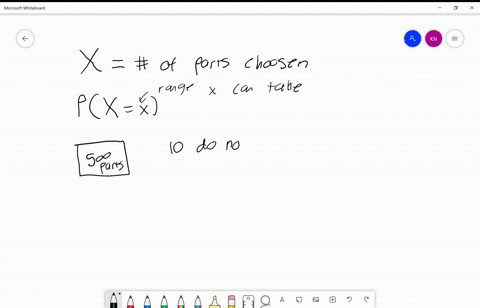 Microsoft Whiteboard
KN
X = # of parts choosen
range x can take
P(X = x)
500 parts
10 do no
A